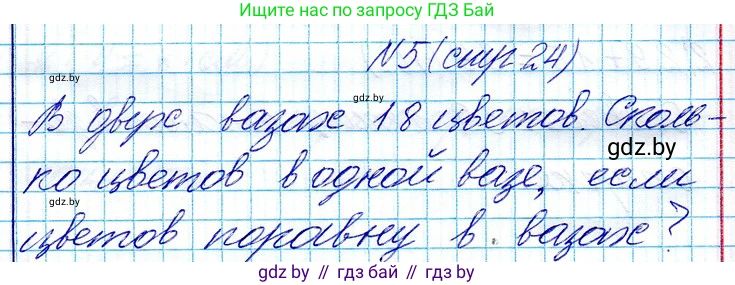 Ищите нас по запросу ГДЗ Бай
N5 (стр 24)
gdz.by
gdz.by
В двух вазах 18 цветов. Сколь-
gdz.by
ко цветов в одной вазе, если
gdz.by
цветов поравну в вазах?
gdz.by // гдз бай // гдз.by